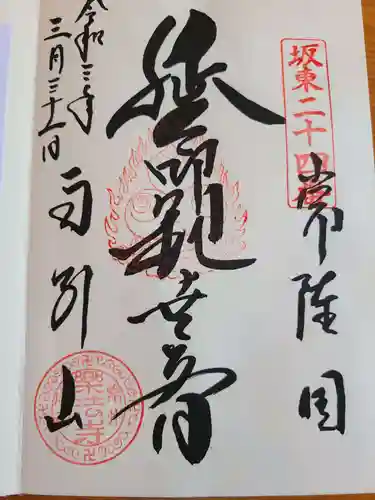 坂東二十四番
常陸国
延命観世音
雨引山
樂法寺
令和三年
三月三十一日